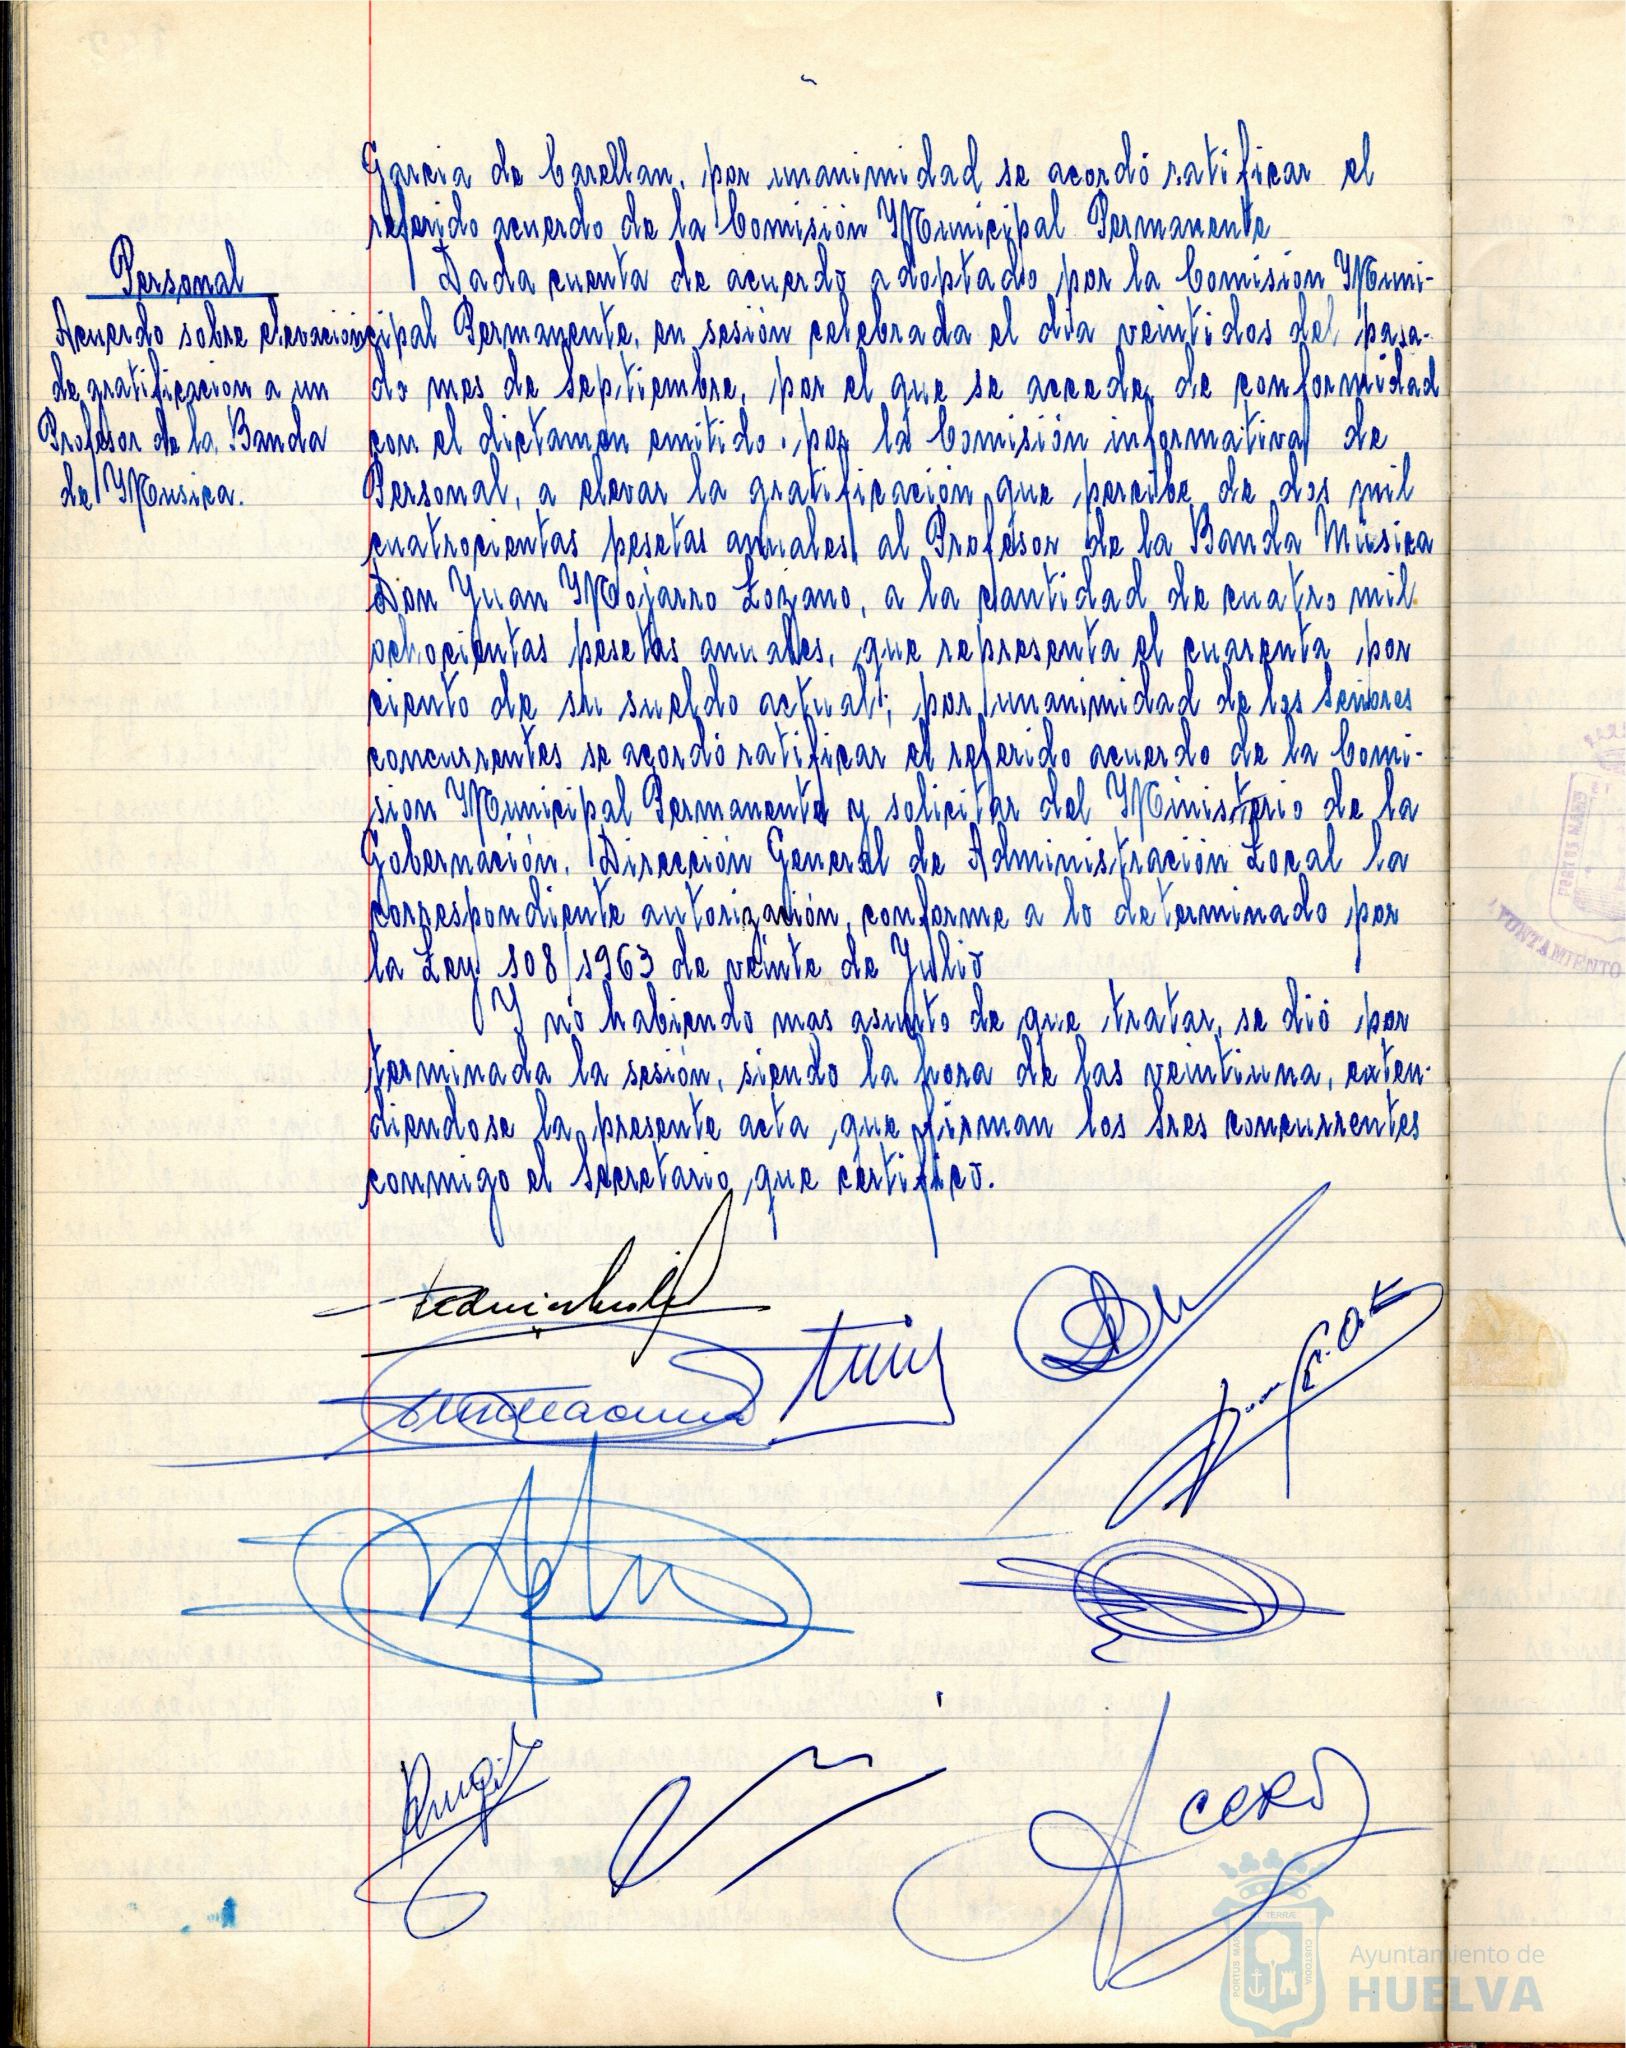 Garcia de Carellan, por unanimidad se acordó ratificar el
referido acuerdo de la Comisión Municipal Permanente
Personal
Acuerdo sobre elevación
de gratificacion a un
Profesor de la Banda
de Musica.
Dada cuenta de acuerdo adoptado por la Comision Muni-
cipal Permanente, en sesión celebrada el dia veintidos del pasa-
do mes de Septiembre, por el que se accede, de conformidad
con el dictamen emitido por la Comisión informativa de
Personal, a elevar la gratificación que percibe de dos mil
cuatrocientas pesetas anuales al Profesor de la Banda Música
Don Juan Mojarro Lozano, a la cantidad de cuatro mil
ochocientas pesetas anuales, que representa el cuarenta por
ciento de su sueldo actual; por unanimidad de los Señores
concurrentes se acordó ratificar el referido acuerdo de la Comi-
sion Municipal Permanente y solicitar del Ministerio de la
Gobernación, Dirección General de Administración Local la
correspondiente autorización, conforme a lo determinado por
la Ley 108/1963 de veinte de Julio
Y no habiendo mas asunto de que tratar, se dió por
terminada la sesión, siendo la hora de las veintiuna, exten-
diendose la presente acta que firman los Sres concurrentes
conmigo el Secretario que certifico.
Acero
PORTUS MARIS
AYUNTAMIENTO
PORTUS MARIS
TERRÆ
CUSTODIA
Ayuntamiento de
HUELVA